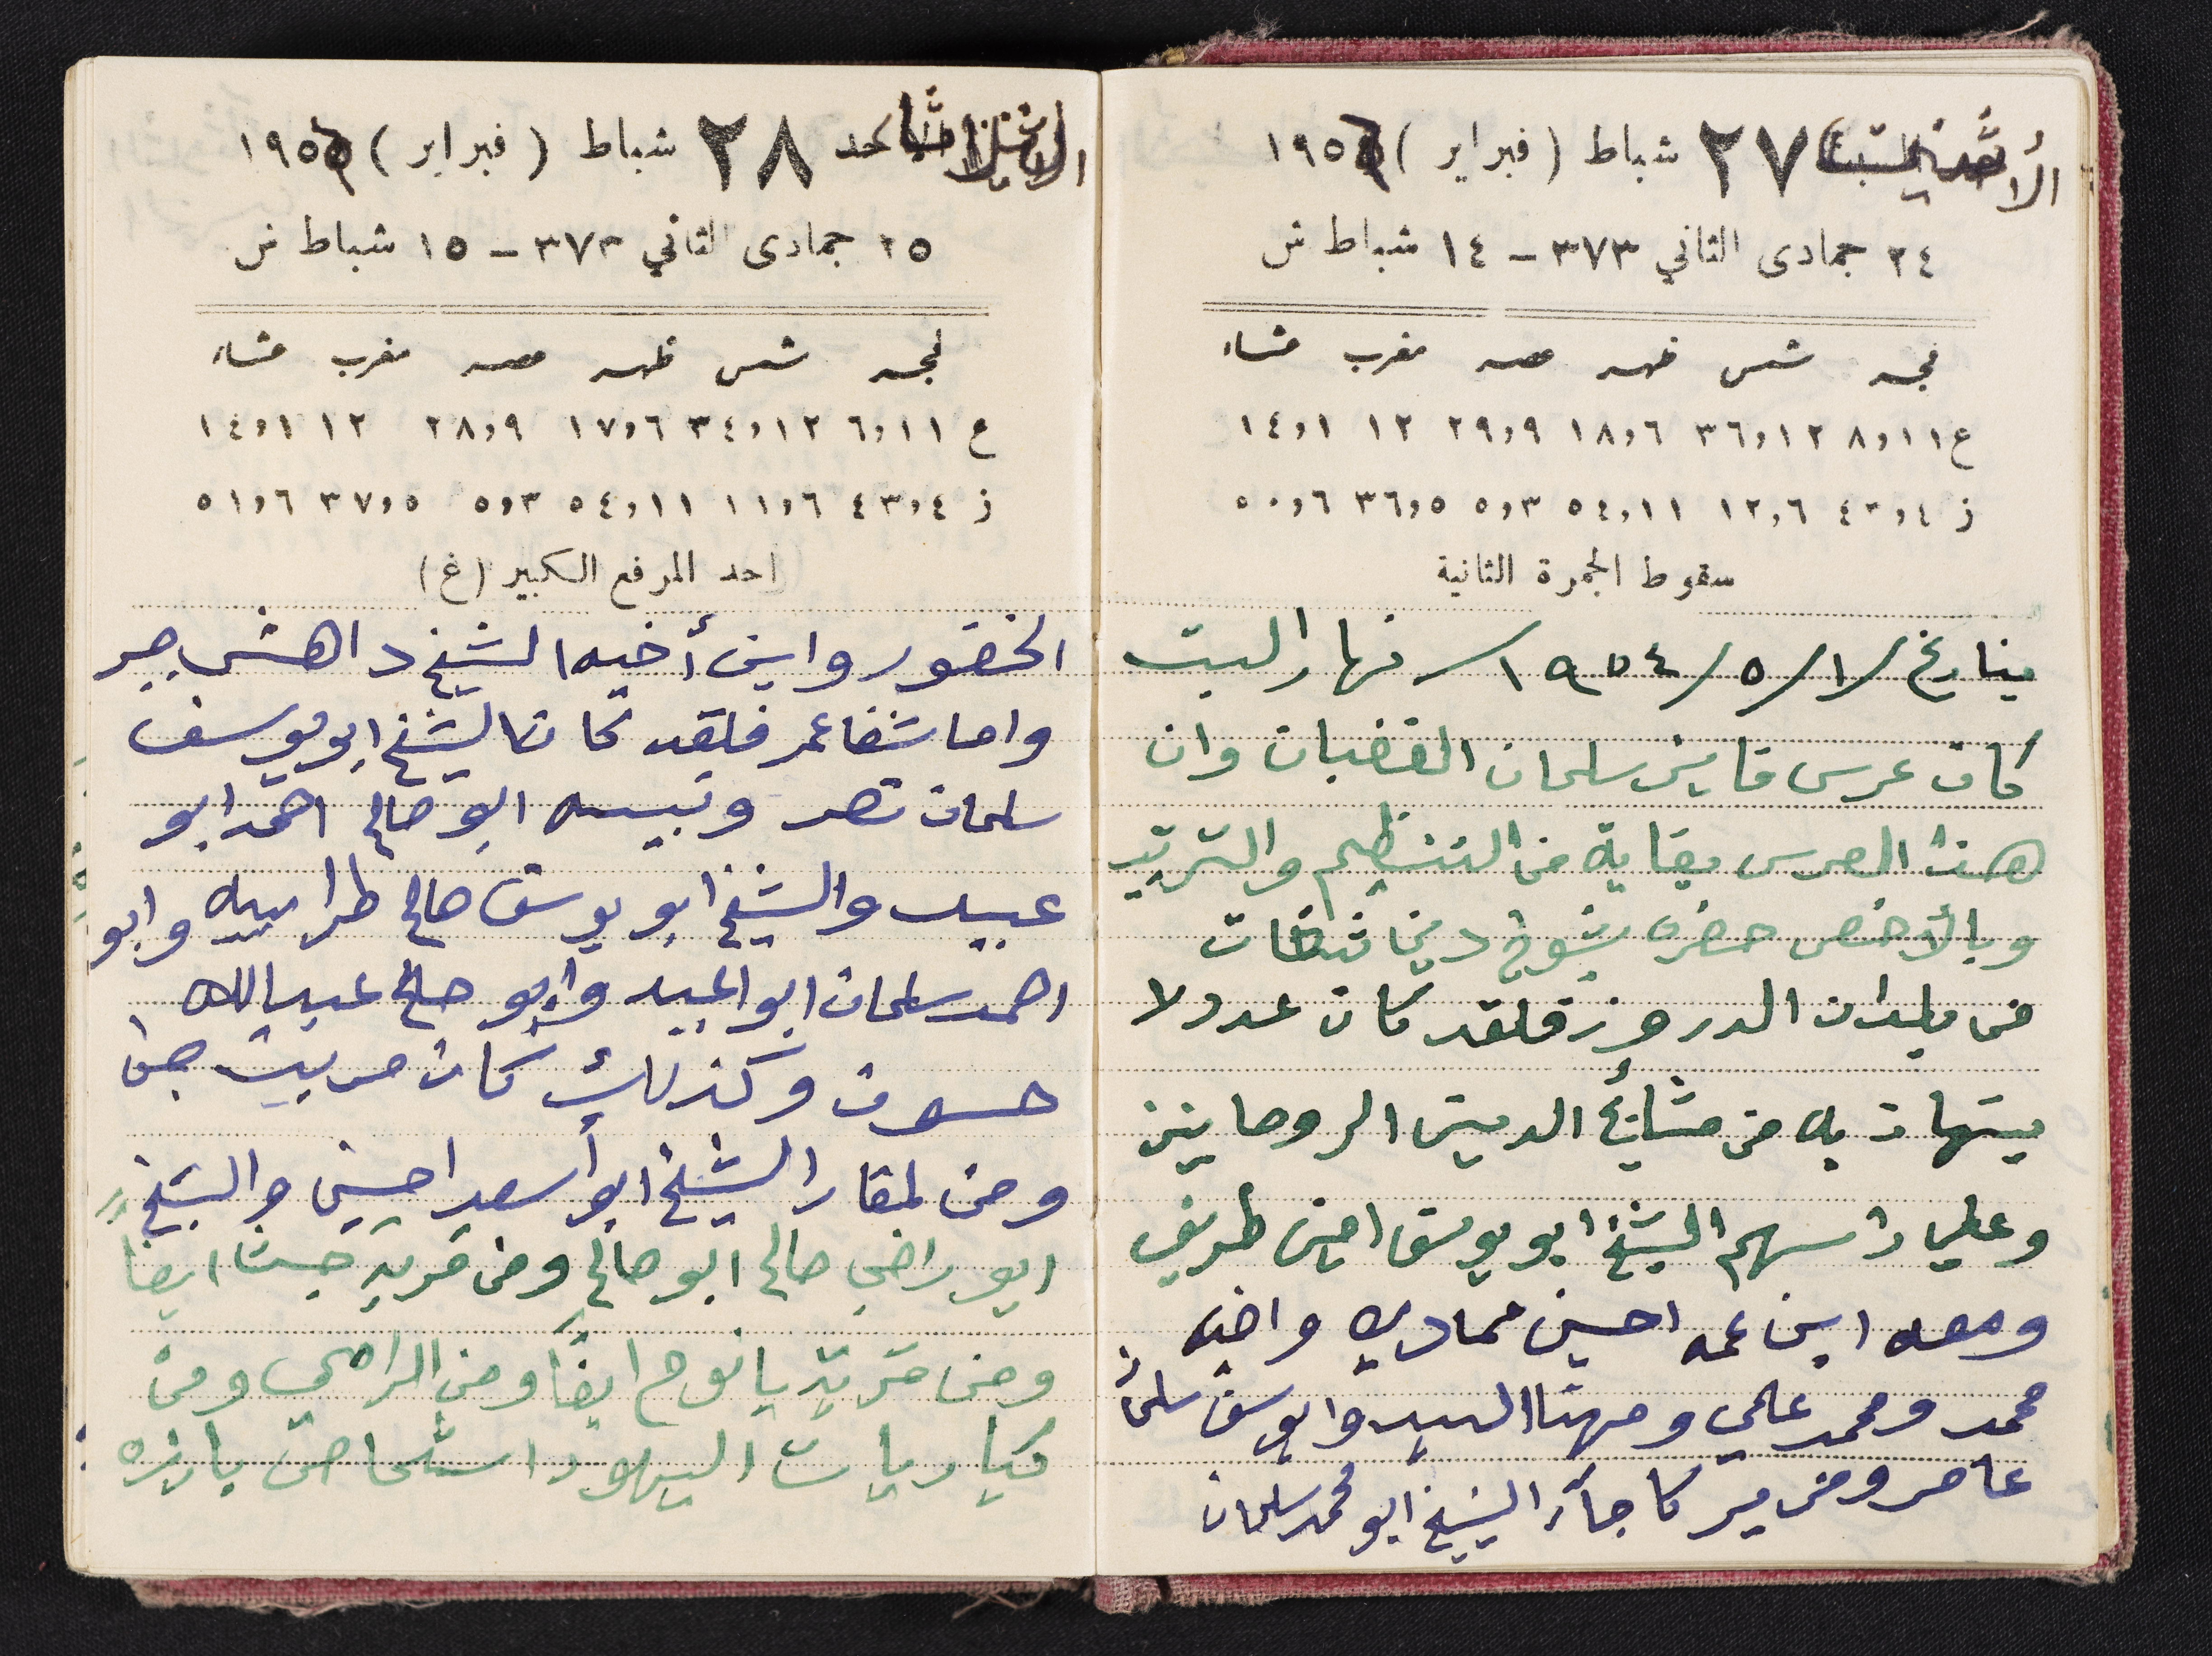 ٢٧ شباط (فبراير) ١٩٥
٢٤ جمادى الثاني ٣٧٣ - ١٤ شباط ش
فجر شمس ظهر عصر مغرب عشاء
ع ١١،٨ ١٢،٣٦ ٦،١٨ ٩،٢٩ ١٢ ١،١٤
ز ٤،٤٣ ٦،١٢ ١١،٥٤ ٣،٥ ٥،٣٦ ٦،٥٠
سقوط الجمرة الثانية
بتاريخ ١/٥/١٩٥٤ نهار السبت
كان عرس فايز سلمان القضبان وان
هذا العرس بغاية من التنظيم والترتيب
وبالأخص حضره شيوخ دين
من بلدان الدروز فلقد كان عدد لا
يستهان به من مشايخ الدين الروحانيين
وعلى رأسهم الشيخ ابو يوسف امين طريف
ومعه ابن عمه احسين حمادي واخيه
محمد ومحمد علي ومهنا السيد وابو يوسف سلمان
عامر ومن يركا جاء الشيخ ابو محمد سلمان
الأحد ٢٨ شباط (فبراير) ١٩٥
٢٥ جمادى الثاني ٣٧٣ - ١٥ شباط ش
فجر شمس ظهر عصر مغرب عشاء
ع ١١،٦ ١٢،٣٤ ٦،١٧ ٩،٢٨ ١٢ ١،١٤
ز ٤،٤٣ ٦،١١ ١١،٥٤ ٣،٥ ٥،٣٧ ٦،٥١
احد المرفع الكبير (غ)
وابن أخيه الشيخ داهش جبر
واما شفاعمر فلقد كان الشيخ ابو يوسف
سلمان نصر ونبيه ابو صالح احمد ابو
عبيد والشيخ ابو يوسف صالح طرابيه وابو
احمد سلمان ابو العبيد وابو صالح عبدالله
حسون وكذلك كان من بيت جن
ومن المغار الشيخ ابو أسعد احسين والشيخ
ابو راضي صالح ابو صالح ومن قرية جت ايضاً
ومن قرية يانوح ايضاً ومن الرامي ومن
كباريات اليهود اشخاص بارزه